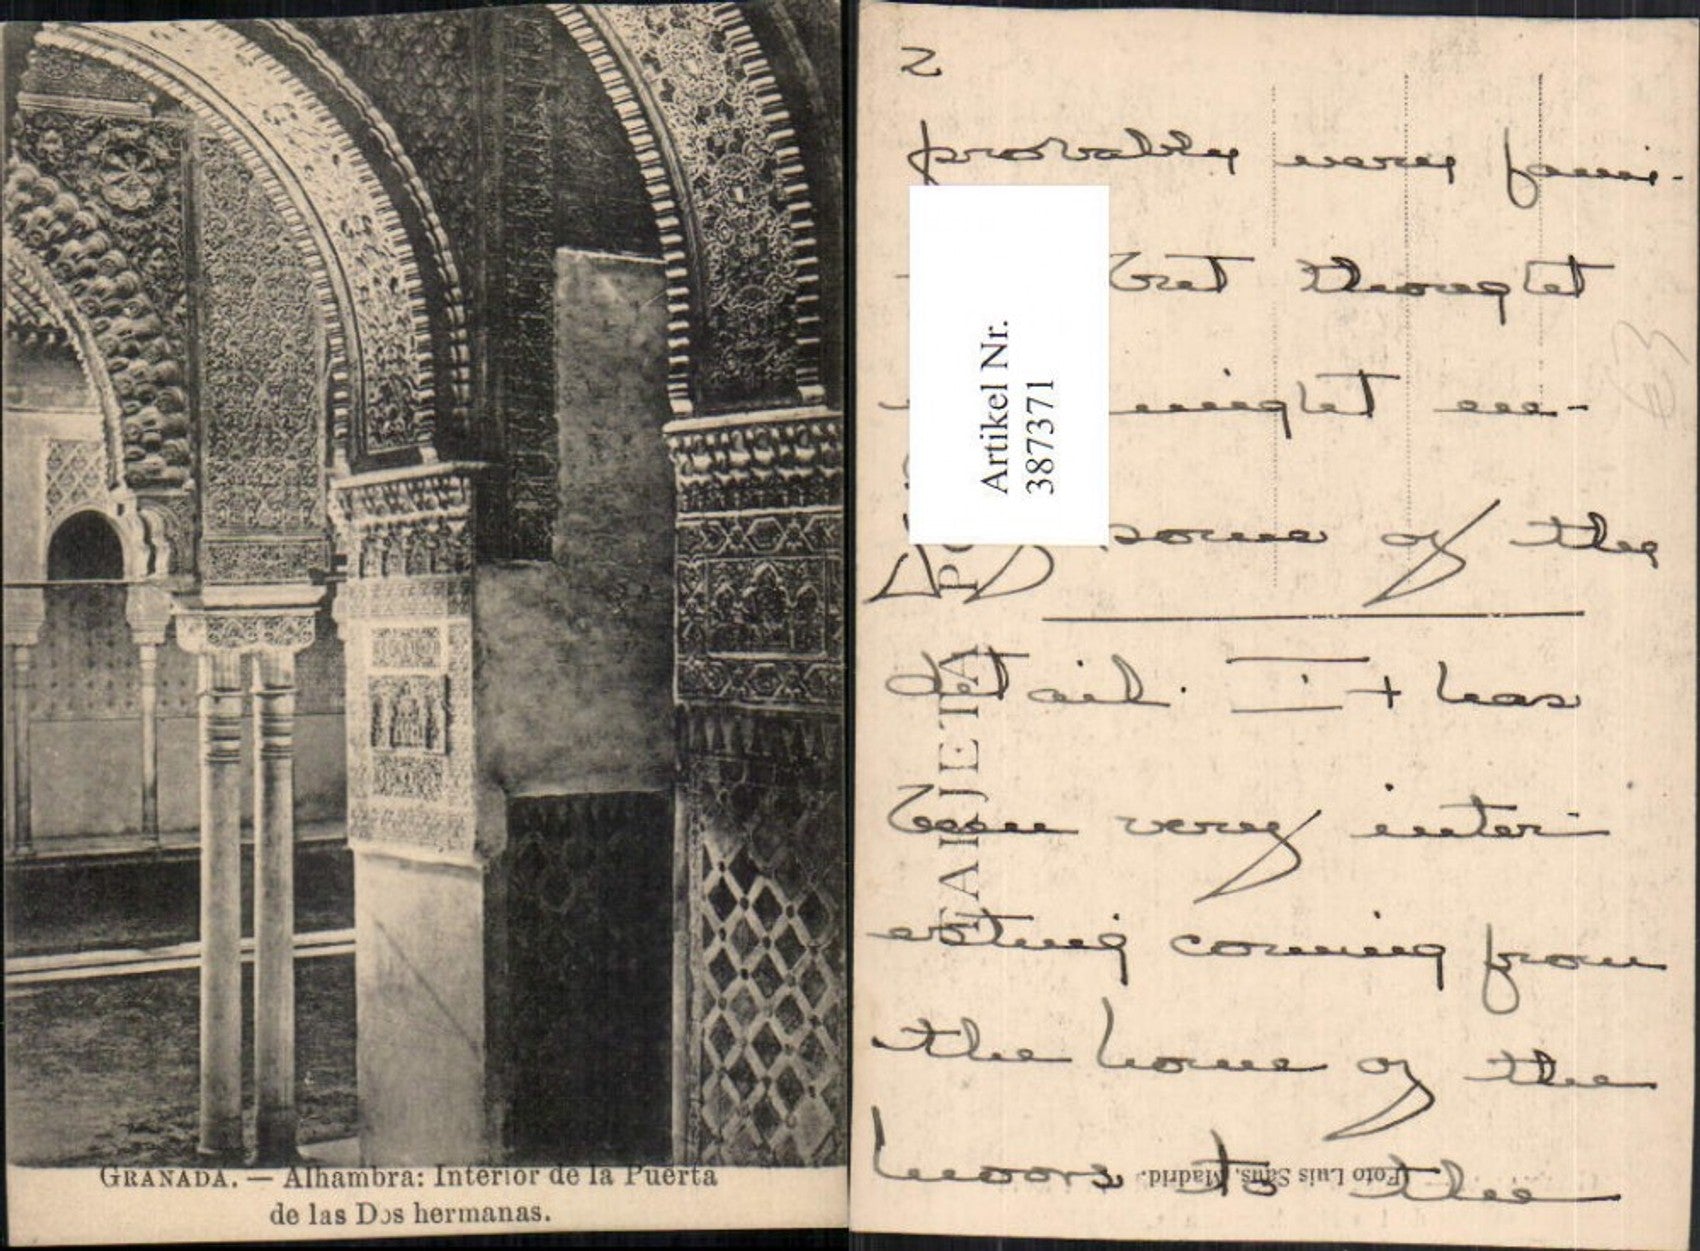 GRANADA. — Alhambra: Interior de la Puerta
de las Dos hermanas.
2
probably very fami-
but thought
might en-
some of the
detail. It has
been very inter-
esting coming from
the home of the
moors to the
Artikel Nr.
387371
TARJETA PO
Foto Luis Saus, Madrid.
63